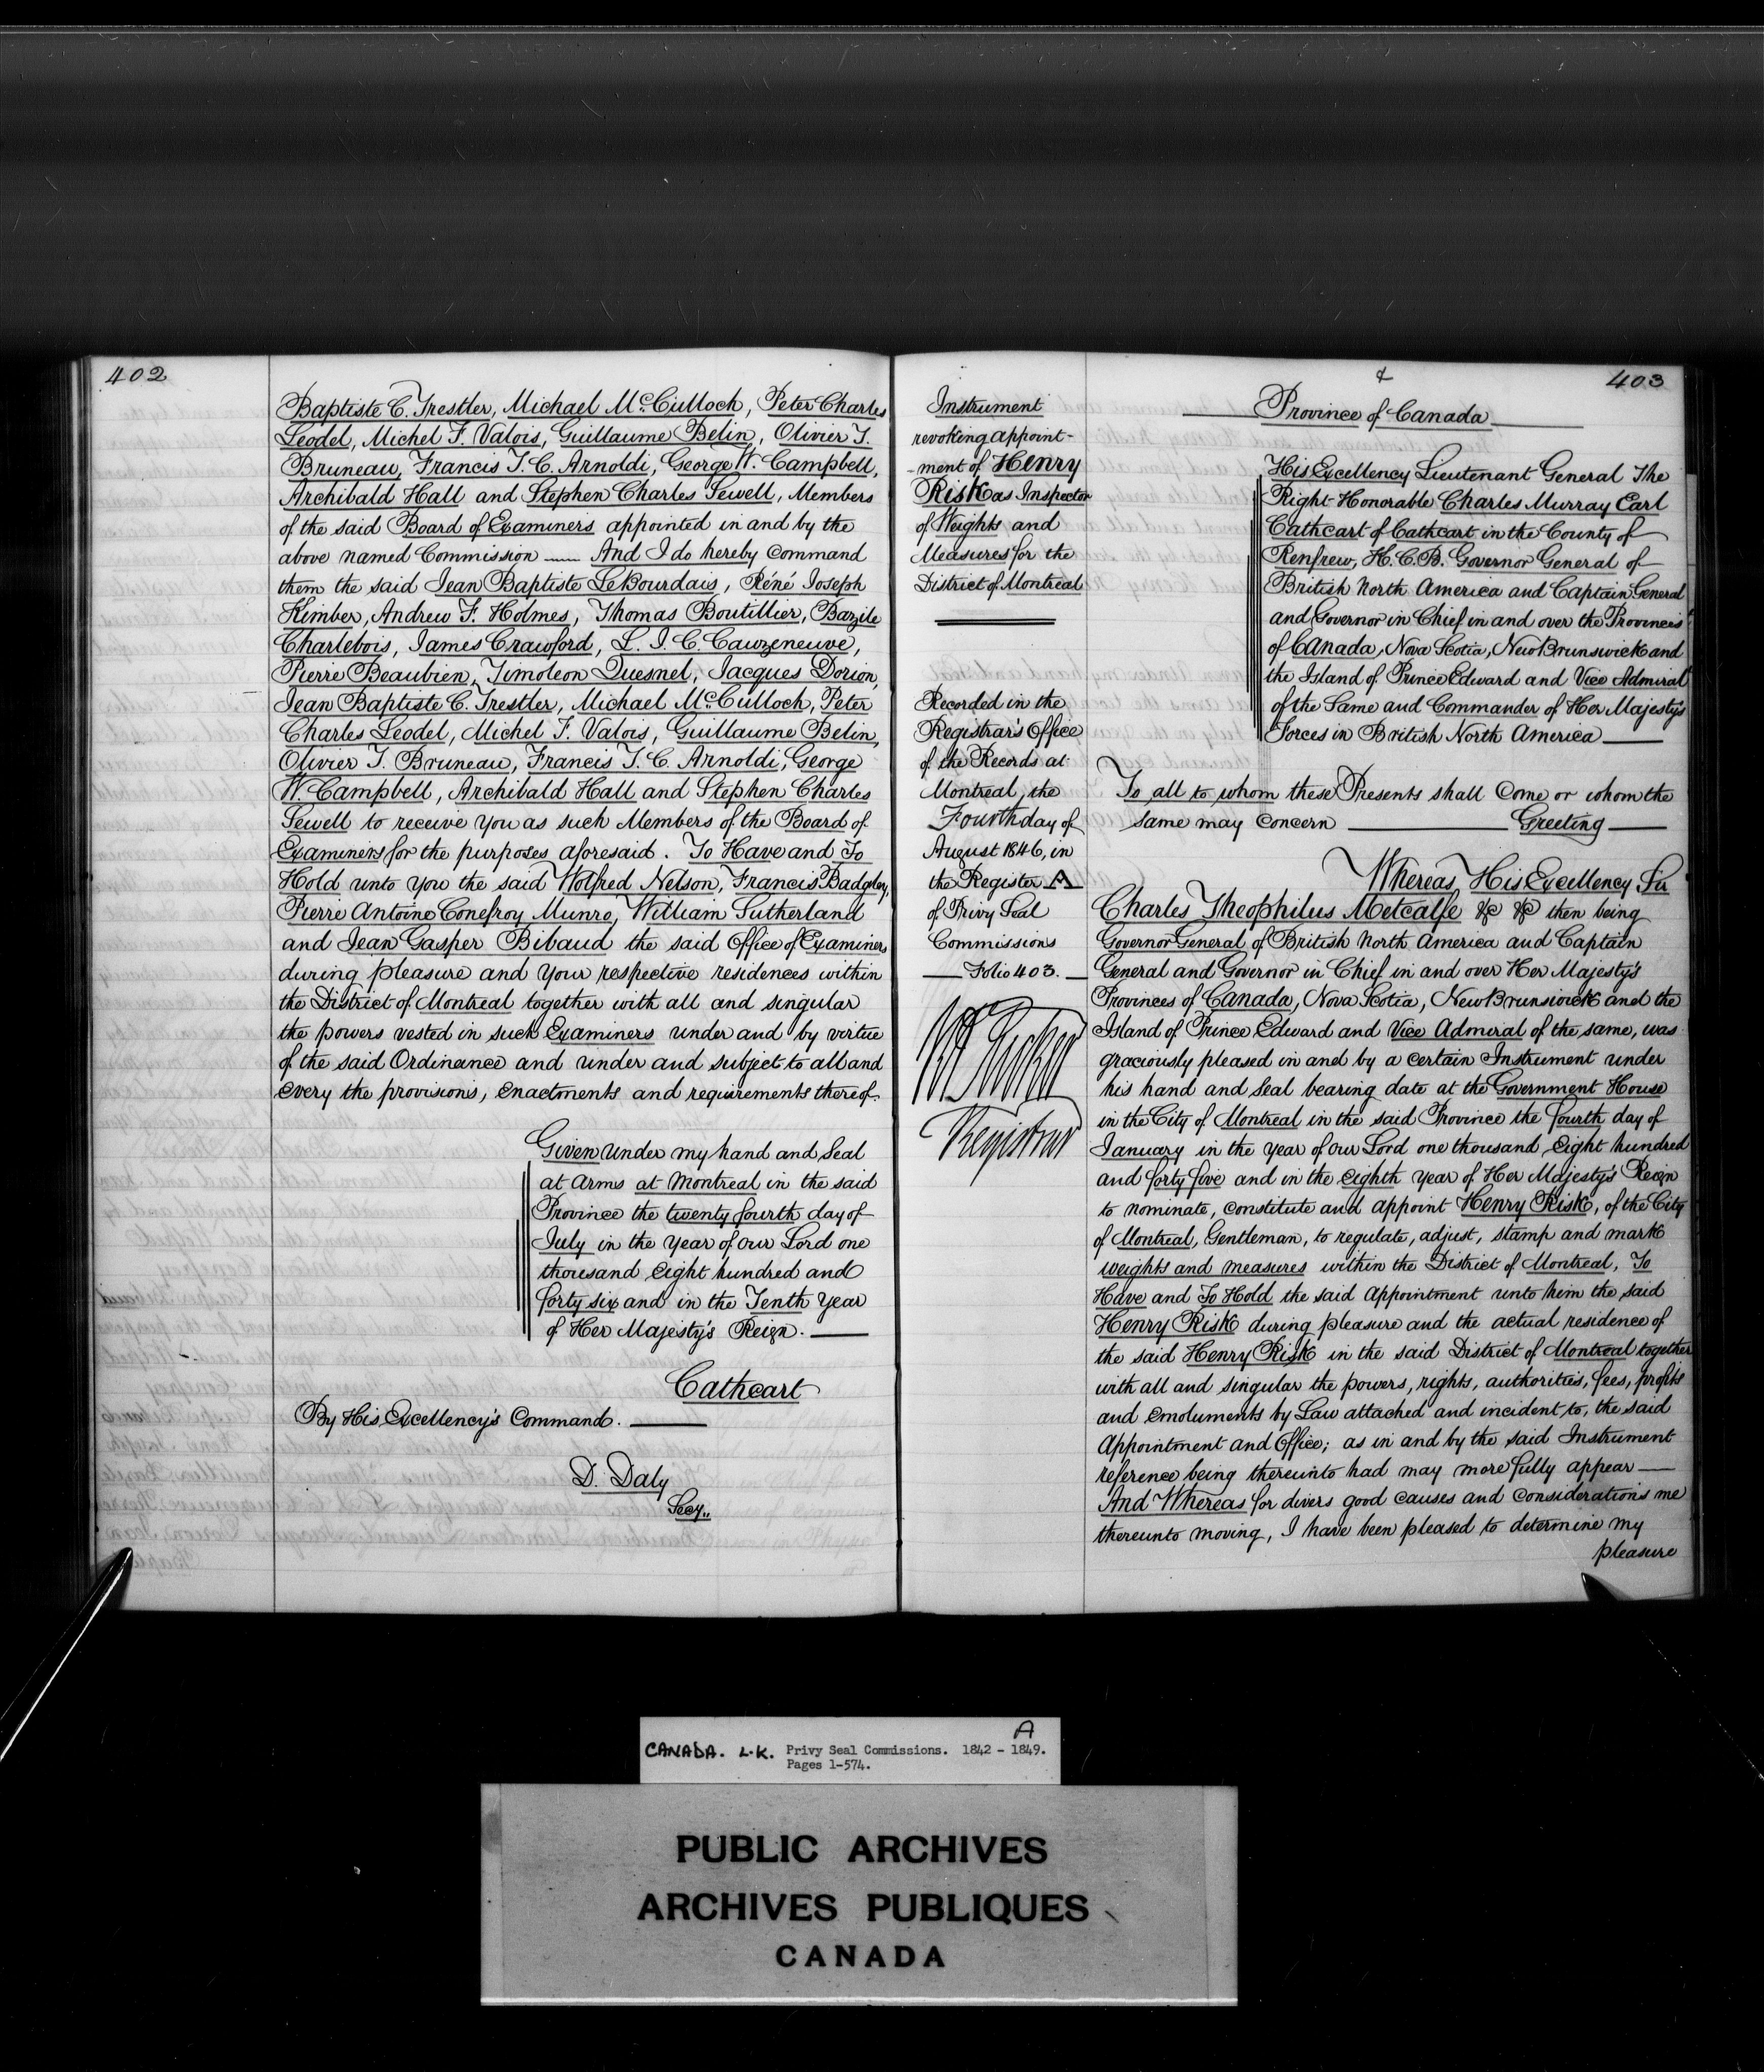 402
Baptiste C. Trestler, Michael McCulloch, Peter Charles
Leodel, Michel F. Valois, Guillaume Belin, Olivier T.
Bruneau, Francis T. C. Arnoldi, George W. Campbell,
Archibald Hall and Stephen Charles Sewell, Members
of the said Board of Examiners appointed in and by the
above named Commission —— And I do hereby Command
them the said Jean Baptiste LeBourdais, Réné Joseph
Kimber, Andrew F. Holmes, Thomas Boutillier, Bazile
Charlebois, James Crawford, L. J. C. Cauzeneuve,
Pierre Beaubien, Timoleon Quesnel, Jacques Dorion,
Jean Baptiste C. Trestler, Michael McCulloch, Peter
Charles Leodel, Michel F. Valois, Guillaume Belin,
Olivier T. Bruneau, Francis T. C. Arnoldi, George
W. Campbell, Archibald Hall and Stephen Charles
Sewell to receive You as such Members of the Board of
Examiners for the purposes aforesaid. To Have and To
Hold unto You the said Wolfred Nelson, Francis Badgley,
Pierre Antoine Conefroy Munro, William Sutherland
and Jean Gasper Bibaud the said Office of Examiners
during pleasure and Your respective residences within
the District of Montreal together with all and singular
the powers vested in such Examiners under and by virtue
of the said Ordinance and under and subject to all and
every the provisions, enactments and requirements thereof.
Given under my hand and Seal
at Arms at Montreal in the said
Province the twenty fourth day of
July in the Year of Our Lord one
thousand Eight hundred and
forty six and in the Tenth Year
of Her Majesty's Reign. ——
Cathcart
By His Excellency's Command. ——
D. Daly
Secy.,
403
Instrument
revoking appoint-
-ment of Henry
Risk as Inspector
of Weights and
Measures for the
District of Montreal
Recorded in the
Registrar's Office
of the Records at
Montreal, the
Fourth day of
August 1846, in
the Register A
of Privy Seal
Commissions
—— Folio 403. ——
Registrar
Province of Canada
His Excellency Lieutenant General The
Right Honorable Charles Murray Earl
Cathcart of Cathcart in the County of
Renfrew, K.C.B. Governor General of
British North America and Captain General
and Governor in Chief in and over the Provinces
of Canada, Nova Scotia, New Brunswick and
the Island of Prince Edward and Vice Admiral
of the Same and Commander of Her Majesty's
Forces in British North America ——
To all to whom these Presents shall Come or whom the
same may Concern —— Greeting ——
Whereas His Excellency Sir
Charles Theophilus Metcalfe &c &c then being
Governor General of British North America and Captain
General and Governor in Chief in and over Her Majesty's
Provinces of Canada, Nova Scotia, New Brunswick and the
Island of Prince Edward and Vice Admiral of the same, was
graciously pleased in and by a certain Instrument under
his hand and Seal bearing date at the Government House
in the City of Montreal in the said Province the fourth day of
January in the Year of Our Lord one thousand Eight hundred
and forty five and in the Eighth Year of Her Majesty's Reign
to nominate, constitute and appoint Henry Risk, of the City
of Montreal, Gentleman, to regulate, adjust, stamp and mark
weights and measures within the District of Montreal, To
Have and To Hold the said Appointment unto him the said
Henry Risk during pleasure and the actual residence of
the said Henry Risk in the said District of Montreal together
with all and singular the powers, rights, authorities, fees, profits
and emoluments by Law attached and incident to, the said
Appointment and Office; as in and by the said Instrument
reference being thereunto had may more fully appear ——
And Whereas for divers good causes and considerations me
thereunto moving, I have been pleased to determine my
pleasure
A
CANADA. L.K. Privy Seal Commissions. 1842 - 1849.
Pages 1-574.
PUBLIC ARCHIVES
ARCHIVES PUBLIQUES
CANADA